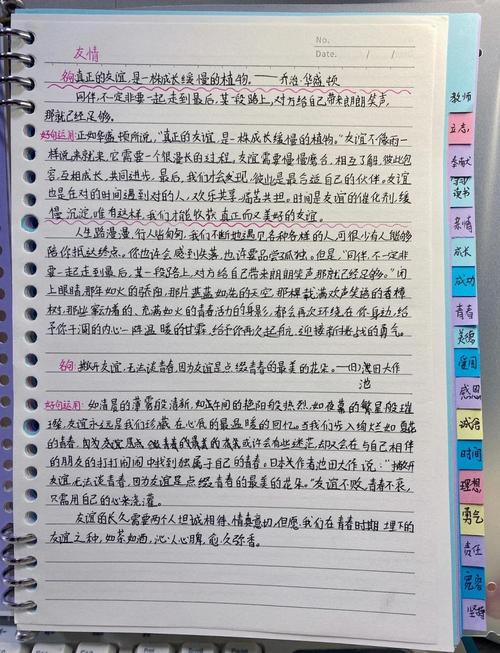 No.
Date. / /
友情
例 真正的友谊，是一株成长缓慢的植物。——乔治·华盛顿
同伴，不一定非要一起走到最后，某一段路上，对方给自己带来朗朗笑声，
那就已经足够。
好句运用：正如华盛顿所说，"真正的友谊，是一株成长缓慢的植物。"友谊不像雨一
样说来就来，它需要一个很漫长的过程，友谊需要慢慢磨合，相互了解，彼此包
容，互相成长，共同进步，最后，我们才会发现，彼此是最合适自己的伙伴。友谊
也是在对的时间遇到对的人，欢乐共享，痛苦共担。时间是友谊的催化剂，缓
慢沉淀，唯有这样，我们才能收获真正而又美好的友谊。
人生路漫漫，行人皆匆匆，我们不断地遇见各种各样的人，可很少有人能够
陪你抵达终点。你也许会感到失落，也许要品尝孤独。但是，"同伴，不一定非
要一起走到最后，某一段路上，对方给自己带来朗朗笑声那就已经足够。"闭
上眼睛，那年如火的骄阳，那片蓝蓝如洗的天空，那棵载满欢声笑语的香樟
树，那些灵动着的、充满如火的青春活力的身影，都会再次环绕在你身边，给
予你干涸的内心一阵温暖的甘露，给予你再次起航，迎接新挑战的勇气。
撇开友谊，无法谈青春，因为友谊是点缀青春的最美的花朵。——(日)池田大作
好句运用：如清晨的薄雾般清新，如午间的艳阳般热烈，如夜幕的繁星般璀
璨，友谊永远是我们珍藏在心底的最温暖的回忆。当我们步入灿烂如
的青春，
的朋友的打打闹闹中找到然属于自己的青春。日本大作者池田大作说："撇开
友谊，无法谈青春，因为友谊是点缀青春的最美的花朵。"友谊不败，青春不衰，
只需用自己的心来浇灌。
友谊的长久需要两个人坦诚相待，情真意切，但愿我们在青春时期埋下的
友谊之种，如茶如酒，沁人心脾，愈久弥香。
教师
立志
读书
亲情
成长
成功
青春
美德
爱国
感恩
诚信
时间
理想
勇气
责任
宽容
坚持